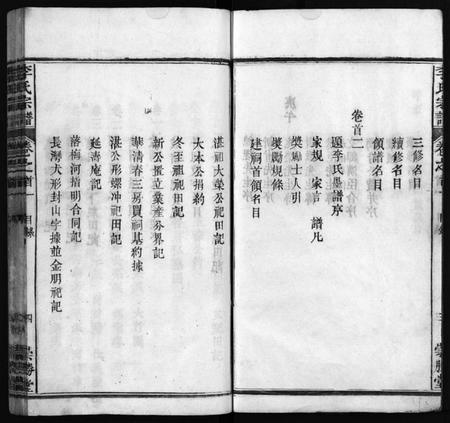 李氏宗譜
卷之首
目錄
三
崇勝堂
三修名目
續修名目
領譜名目
卷首二
題李氏墨譜序
家規 家言 譜凡
獎勵士人引
獎勵規條
建祠首領名目
湛祖大榮公祀田記
大本公捐約
冬至祖祀田記
新公置立業產分界記
華清春三房買祠基約據
湛公形螺冲祀田記
延壽庵記
落梅河捂明合同記
長灣大形封山字據並金朋祀記
李氏宗譜
卷之首
目錄
四
崇勝堂